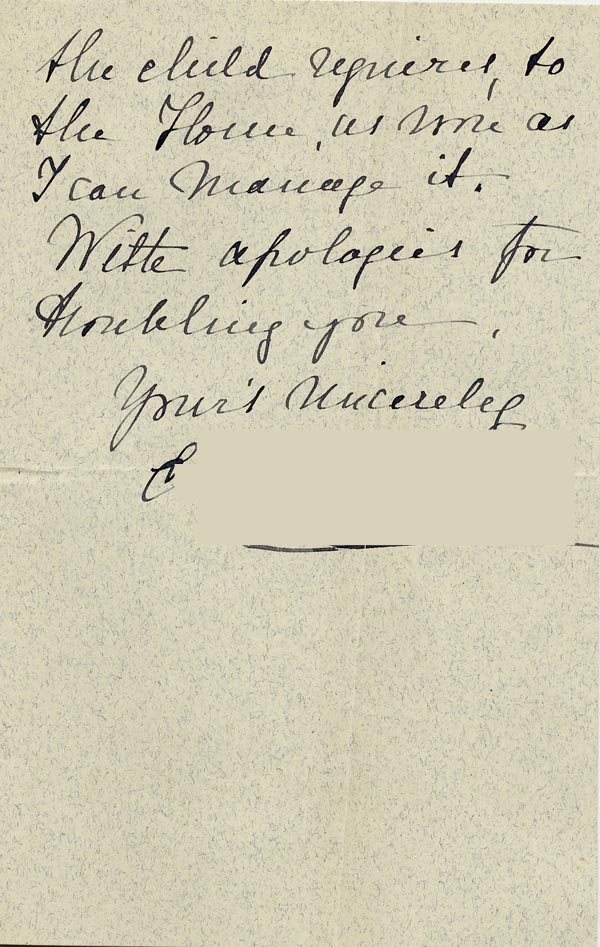 the child requires, to
the Home, as soon as
I can manage it.
With apologies for
troubling you,
Your's sincerely
E